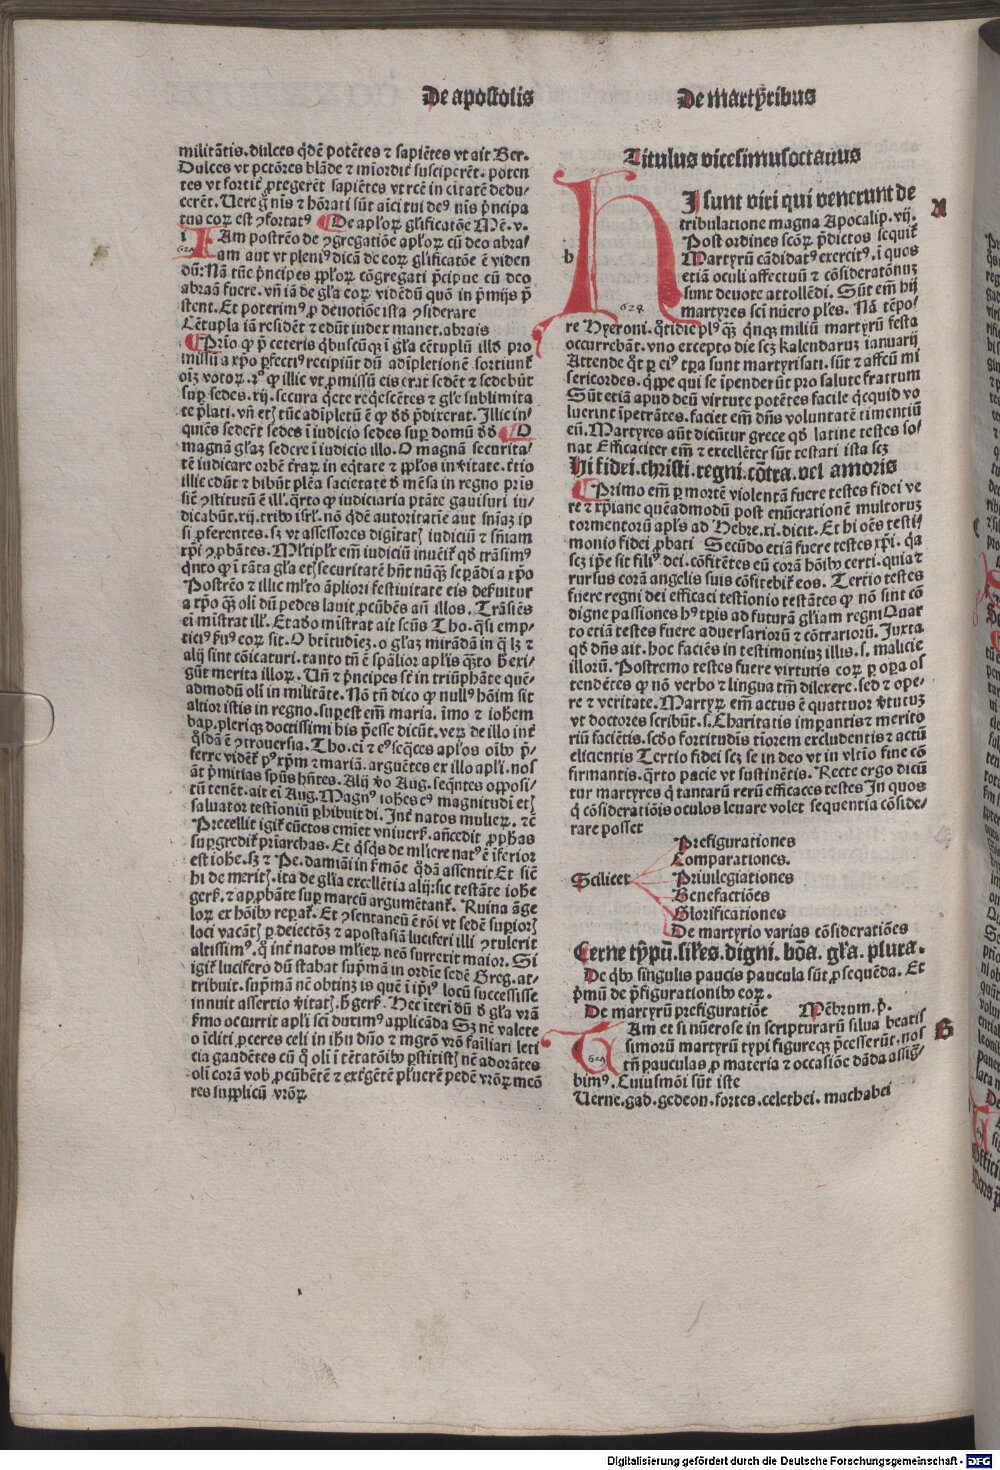 De apostolis
De martyribus
militātis. dulces q̄dē potētes ⁊ sapiētes vt ait Ber.
Dulces vt pctōres blāde ⁊ miordit̄ susciperēt. poten
tes vt fortit̄ ꝓtegerēt sapiētes vt rcē in citatē dedu/
cerēt. Uere ḡ nīs ⁊ hōrati sūt aīci tui deꝰ nīs p̄ncipa
tus coꝝ est ꝯfortatꝰ De aploꝝ gl̄ificatōe Mē. v.
Iam postrēo de ꝯgregatiōe aploꝝ cū deo abra/
am aut vt pleniꝰ dicā de eoꝝ gl̄ificatōe ē viden
dū. Nā tūc p̄ncipes ꝓploꝝ cōgregati p̄cipue cū deo
abraā fuere. vn̄ iā de gl̄a eoꝝ vidēdū quō in p̄mijs p̄
stent. Et poterimꝰ ꝓ deuotiōe ista ꝯsiderare
Cētupla iā residēt ⁊ edūt iudex manet. abrais
Prīo ꝙ p̄ ceteris q̄buscūqꝫ ī gl̄a cētuplū illđ pro
missū a xp̄o ꝑfectiꝰ recipiūt dū adīpletionē sortiunt̄
oīꝫ votoꝝ. ꝛ̄ꝰ ꝙ illic vt ꝓmissū eis erat sedēt ⁊ sedebūt
suꝑ sedes. xij. secura q̄ete reqēscētes ⁊ gl̄e sublimita
te p̄lati. vn̄ etꝫ tūc adīpletū ē ꝙ đđ p̄dixerat. Illic in/
quiēs sedert̄ sedes ī iudicio sedes suꝑ domū đđ O
magnā gl̄aꝫ sedere ī iudicio illo. O magnā securita/
tē iudicare orbē t̄raꝝ in eq̄tate ⁊ ꝓplos in v̄itate. t̄tio
illic edūt ⁊ bibūt plēa sacietate đ mēsa in regno pr̄is
siē ꝯstitutū ē ill. q̄rto ꝙ iudiciaria ptāte gauisuri iu/
dicabūt. xij. tribꝰ isrl̄. nō q̄dē autoritatie aut snīaꝫ ip
si ꝓferentes. sꝫ vt assessores digitatꝫ iudiciū ⁊ sn̄iam
xp̄i ꝯꝓbātes. Ml̄tiplr̄ em̄ iudiciū inueīt̄ qđ trāsimꝰ
Postrēo ⁊ illic ml̄to āpliori festiuitate eis defuitur
a xp̄o q̄ꝫ oli dū pedes lauit ꝓcūbēs añ illos. Trāsiēs
alij sint cōicaturi. tanto tn̄ ē spālior aplis q̄sto h̄ exi/
gūt merita illoꝝ. Un̄ ⁊ p̄ncipes sē in triūphāte quē/
admodū oli in militāte. Nō tn̄ dico ꝙ nullꝰ hōim sit
altior istis in regno. suꝑest em̄ maria. īmo ⁊ iohem
bap. pleriqꝫ doctissimi his p̄esse dicūt. veꝝ de illo int̄
q̄sdā ē ꝯtrouersia. Tho. ei ⁊ eꝰ seq̄ces aplos oīb p̄/
ferre vidēt̄ pꝰ xp̄m ⁊ mariā. arguētes ex illo apli. nos
āt p̄mitias spūs hn̄tes. Alij v̄o Aug. seq̄ntes oꝓposi/
tū tenēt. ait ei Aug. Magnꝰ iohes cꝰ magnitudi etꝫ
saluator testioniū ꝑhibuit di. Int̄ natos mulieꝝ. ⁊c̄
Precellit igit̄ cūctos emiet vniuerſ̄. añcedit ꝓphas
suꝑgredit̄ pr̄iarchas. Et q̄sq̄s de ml̄iere natꝰ ē īferior
est iohe. sꝫ ⁊ Pe. damiāi in ẜmōe q̄dā assentit Et siē
hi de meritꝫ. ita de gl̄ia excellētia alij: sic testāte iohe
gerẜ. ⁊ apꝓbāte suꝑ marcū argumētant̄. Ruina āge
loꝝ ex hōib repat̄. Et ꝯsentaneū ē rōi vt sedē suꝑiorꝫ
loci vacātꝫ ꝑ deiectōꝫ ⁊ apostasiā luciferi illi ꝯtulerit
altissimꝰ. q̄ int̄ natos ml̄ieꝝ neō surrexit maior. Si
igit̄ lucifero dū stabat sup̄mā in ordīe sedē Greg. at/
tribuit. sup̄mā nē obtinꝫ is que ī ip̄iꝰ locū successisse
innuit assertio v̄itatꝫ. h̄ gerẜ. Hec iterī dū đ gl̄a vr̄a
ẜmo occurrit apli sci dutimꝰ aꝓplicāda Sꝫ nē valete
o īcliti ꝓceres celi in ihū dn̄o ⁊ mgr̄o vr̄ō faīliari leti
cia gaudētes cū q̄ oli ī tētatōib p̄stitistꝫ nē adorātes
oli corā vob ꝓcūbētē ⁊ exēgētē pluerē pedē vr̄oꝝ meō
res supplicū vr̄oꝝ
Titulus vicesimusoctauus
HI sunt viri qui venerunt de
tribulatione magna Apocalip. vij.
Post ordines scōꝝ p̄dictos sequit̄
Martyrū cādidatꝰ exercitꝰ. i quos
etiā oculi affectuū ⁊ cōsideratōnuꝫ
sunt deuote attollēdi. Sūt em̄ hij
martyres sci nūero ples. Nā tēpo/
re Hyeroni. q̄tidie plꝰ qꝫ q̄nqꝫ miliū martyrū festa
occurrebāt. vno excepto die scꝫ kalendaruꝫ ianuarij
Attende q̄t ꝑ eiꝰ tꝑa sunt martyrisati. sūt ⁊ affectū mi
sericordes. q̄ꝓpe qui se īpenderūt pro salute fratrum
Sūt etiā apud deū virtute potētes facile q̄cquid vo
luerint īpetrātes. faciet em̄ dn̄s voluntatē timentiū
eū. Martyres aūt dicūtur grece qđ latine testes so/
nat Efficaciter em̄ ⁊ excellēter sūt testati ista scꝫ
Hi fidei. christi. regni. cōtra. vel amoris
Primo em̄ ꝑ mortē violentā fuere testes fidei ve
re ⁊ xp̄iane quēadmodū post enūcrationē multoruꝫ
tormentorū apls ad Hebre. xi. dicit. Et hi oēs testi/
monio fidei ꝓbati Secūdo etiā fuere testes xp̄i. qa
scꝫ ip̄e sit filiꝰ dei. cōfitētes eū corā hōib certi. quia ⁊
rursus corā angelis suis cōfitebit̄ eos. Tertio testes
fuere regni dei efficaci testīonio testātes ꝙ nō sunt cō
digne passiones hꝰ tꝑis ad futurā gl̄iam regni Quar
to etiā testes fuere aduersariorū ⁊ cōtrariorū. Juxta
qđ dn̄s ait. hoc faciēs in testimoniuꝫ illis. s. malicie
illorū. Postremo testes fuere virtutis coꝝ ꝑ oꝑa os
tendētes ꝙ nō verbo ⁊ lingua tm̄ dilexere. sed ⁊ ope/
re ⁊ veritate. Martyꝝ em̄ actus ē quattuor v̄tutuꝫ
vt doctores scribūt. s. Charitatis imꝑantis ⁊ merito
riū faciētis. scđo fortitudis tīorem excludentis ⁊ actū
elicientis Tertio fidei scꝫ se in deo vt in vltīo fine cō
firmantis. q̄rto pacie vt sustinētis. Recte ergo dicū
tur martyres q̄ tantarū rerū efficaces testes In quos
q̄ cōsideratiōis oculos leuare volet sequentia cōside/
rare posset
Prefigurationes
Comparationes.
Scilicet Priuilegiationes
Benefactiōes
Glorificationes
De martyrio varias cōsideratiōes
Cerne typū. sil̄es. digni. bōa. gl̄a. plura.
De q̄b singulis paucis paucula sūt ꝓsequēda. Et
p̄mū de p̄figurationib eoꝝ.
De martyrū prefiguratiōe Mēbrum. p̄.
Tam et si nūerose in scripturarū silua beatis
simorū martyrū typi figureqꝫ p̄cesserūt. nos
tn̄ pauculas ꝓ materia ⁊ occasiōe dāda assig/
bimꝰ. Cuiusmōi sūt iste
Uerne. gad. gedeon. fortes. celethei. machabei
A
B
b
i
628
629
Digitalisierung gefördert durch die Deutsche Forschungsgemeinschaft - DFG